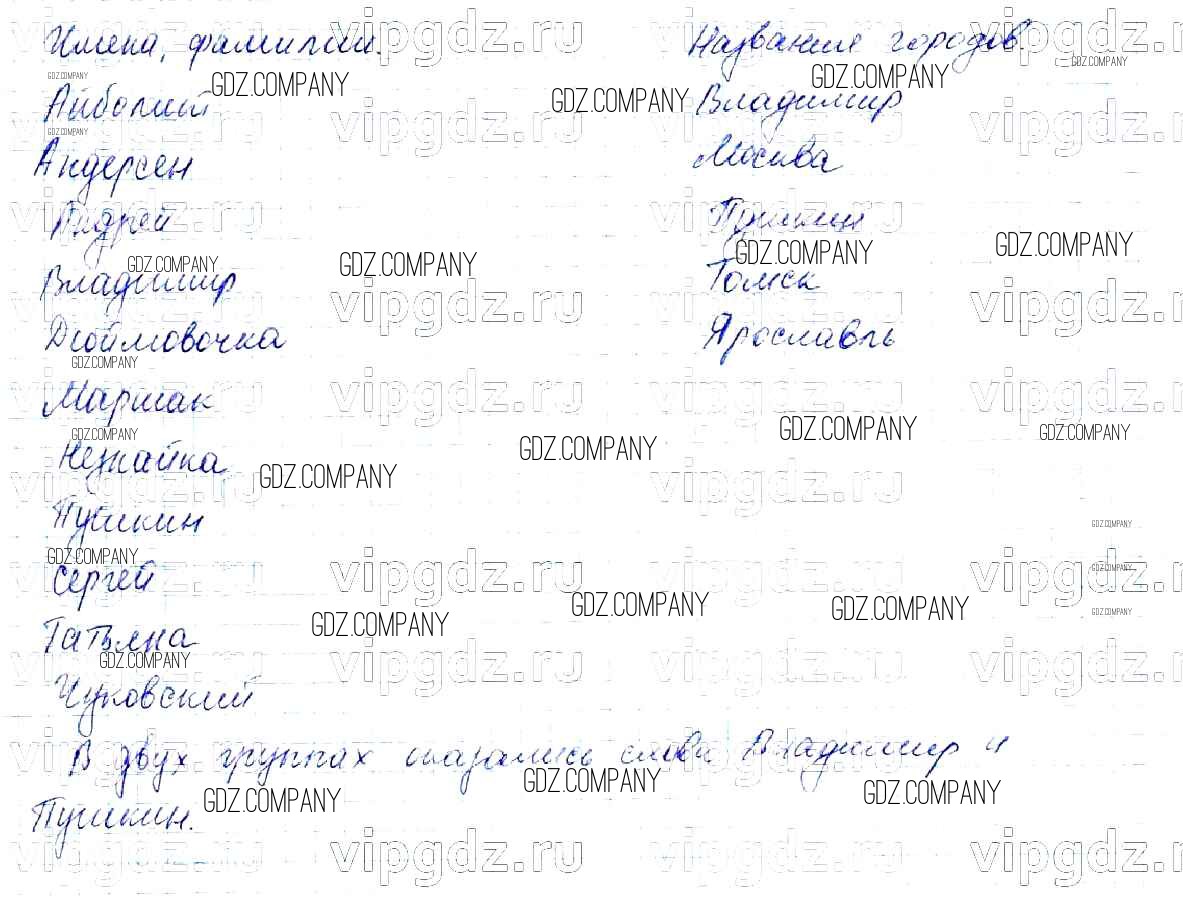 Имена, фамилии.
Айболит
Андерсен
Андрей
Владимир
Дюймовочка
Маршак
Незнайка
Пушкин
Сергей
Татьяна
Чуковский
Названия городов.
Владимир
Москва
Пушкин
Томск
Ярославль
В двух группах оказались слова Владимир и
Пушкин.
GDZ.COMPANY
vipgdz.ru